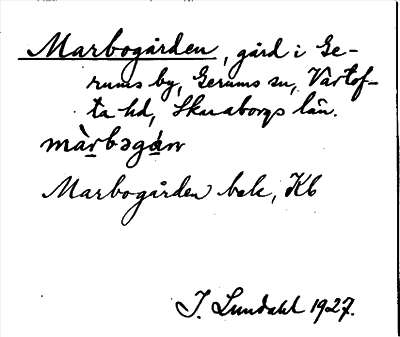 Marbogården, gård i Ge-
rums by, Gerums sn, Vartof-
ta hd, Skaraborgs län.
màrbəgán
Marbogården bek, Kb
I. Lundahl 1927.